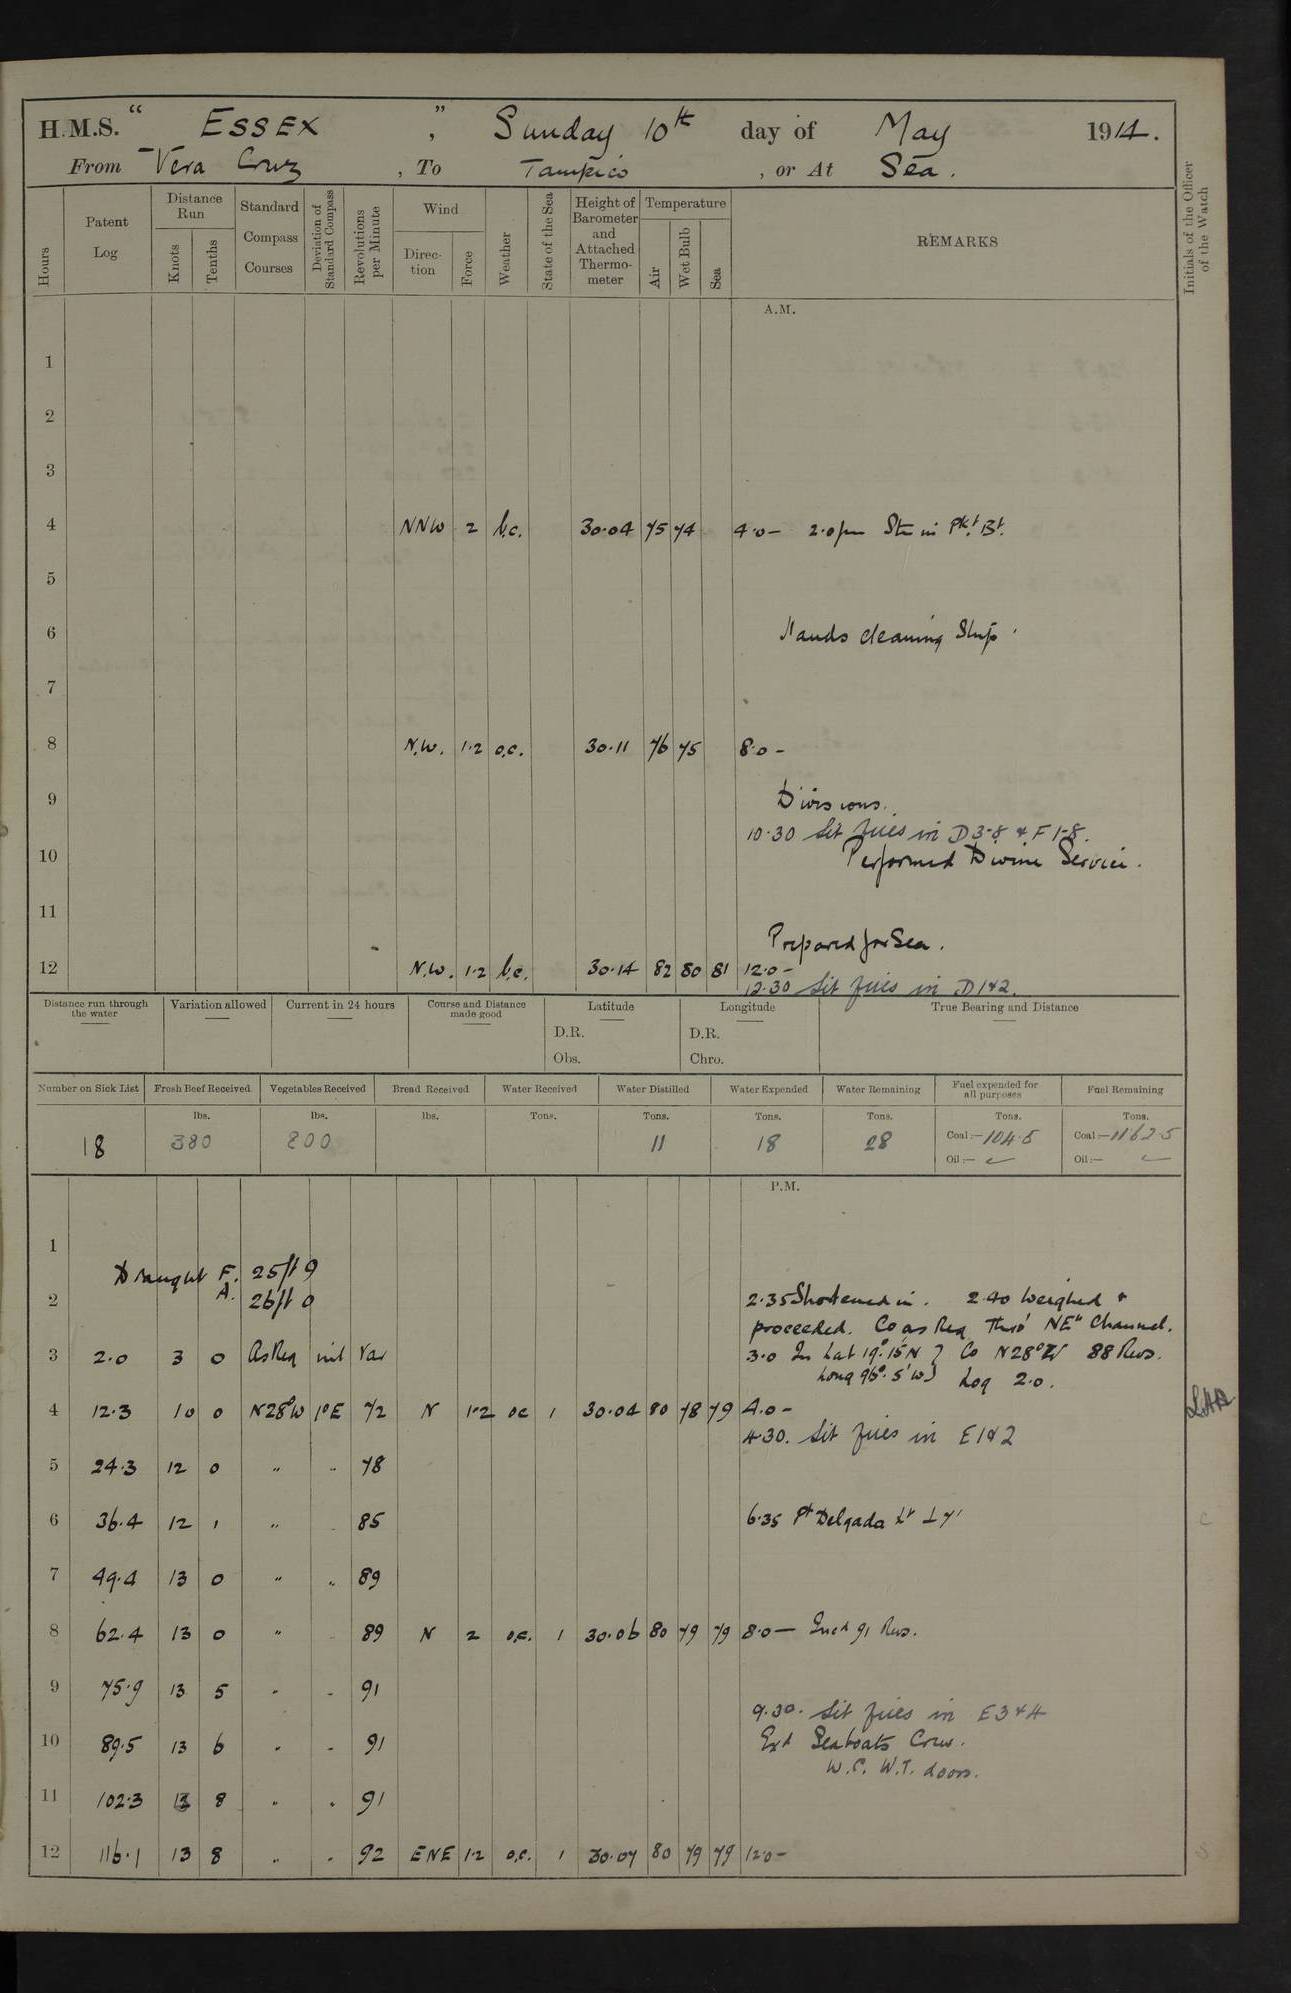 H.M.S. " ESSEX ", Sunday 10th day of May 1914.
From Vera Cruz, To Tampico, or At Sea.
Hours
Patent Log
Distance Run
Knots
Tenths
Standard Compass Courses
Deviation of Standard Compass
Revolutions per Minute
Wind
Direction
Force
Weather
State of the Sea
Height of Barometer and Attached Thermometer
Temperature
Air
Wet Bulb
Sea
REMARKS
Initials of the Officer of the Watch
A.M.
1
2
3
4 NNW 2 b.c. 30.04 75 74 4.0 - 2.0 pm Stm in Pkt. Bt.
5
6 Hands cleaning Ship.
7
8 N.W. 1.2 o.c. 30.11 76 75 8.0 -
9 Divisions.
10.30 Lit fires in D 3-8 & F 1-8.
10 Performed Divine Service.
11
Prepared for Sea.
12 N.W. 1.2 b.c. 30.14 82 80 81 12.0 -
12.30 Lit fires in D 1 & 2.
Distance run through the water
Variation allowed
Current in 24 hours
Course and Distance made good
Latitude
D.R.
Obs.
Longitude
D.R.
Chro.
True Bearing and Distance
Number on Sick List
Fresh Beef Received
Vegetables Received
Bread Received
Water Received
Water Distilled
Water Expended
Water Remaining
Fuel expended for all purposes
Fuel Remaining
lbs. lbs. lbs. Tons. Tons. Tons. Tons. Tons. Tons.
18 380 800 11 18 28 Coal:- 104.5 Coal:- 1162.5
Oil:- Oil:-
P.M.
1
Draught F. 25ft 9
A. 26ft 0
2 2.35 Shortened in. 2.40 Weighed &
proceeded. Co as Req. Thro' NEn Channel.
3 2.0 3 0 As Req nil Var 3.0 In Lat 19° 15' N } Co N28°W 88 Revs.
Long 96°. 5' W } Log 2.0.
4 12.3 10 0 N28°W 1°E 72 N 1-2 oc 1 30.04 80 78 79 4.0 -
4.30. Lit fires in E 1 & 2
5 24.3 12 0 " " 78
6 36.4 12 1 " " 85 6.35 Pt Delgada Lt ⊥ 7'
7 49.4 13 0 " " 89
8 62.4 13 0 " 89 N 2 o.c. 1 30.06 80 79 79 8.0 - Incd 91 Revs.
9 75.9 13 5 " " 91
9.30. Lit fires in E 3 & 4
10 89.5 13 6 " " 91 Exd Seaboats Crew.
W.C. W.T. doors.
11 102.3 13 8 " " 91
12 116.1 13 8 " " 92 ENE 1.2 o.c. 1 30.07 80 79 79 12.0 -